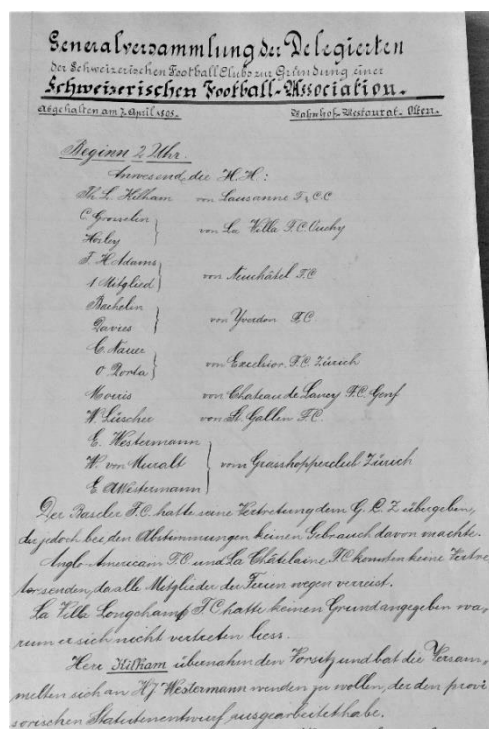 Generalversammlung der Delegierten
der Schweizerischen Football Clubs zur Gründung einer
Schweizerischen Football-Association.
Abgehalten am 7. April 1895. Bahnhof-Restaurat. Olten.
Beginn 2 Uhr.
Anwesend die H.H:
Th. L. Kilham von Lausanne F. & C.C
C. Grosselin
Horley
von La Villa F.C. Ouchy
F. H. Adams
1 Mitglied
von Neuchâtel F.C
Bachelin
Davies
von Yverdon F.C.
C. Nauer
O Rorta
von Excelsior F.C. Zürich
Morris von Chateau de Lancy F.C. Genf
W. Lüscher von St. Gallen F.C.
E. Westermann
W. von Muralt
E. A Westermann
vom Grasshopperclub Zürich
Der Basler F.C. hatte seine Vertretung dem G.C.Z übergeben,
der jedoch bei den Abstimmungen keinen Gebrauch davon machte.
Anglo-American F.C und La Châtelaine F.C konnten keine Vertre
ter senden, da alle Mitglieder der Ferien wegen verreist.
La Ville Longchamp F.C hatte keinen Grund angegeben wa,
rum er sich nicht vertreten liess.
Herr Kilham übernahm den Vorsitz und bat die Versam,
melten sich an H Westermann wenden zu wollen, der den provi
sorischen Statutenentwurf ausgearbeitet habe.